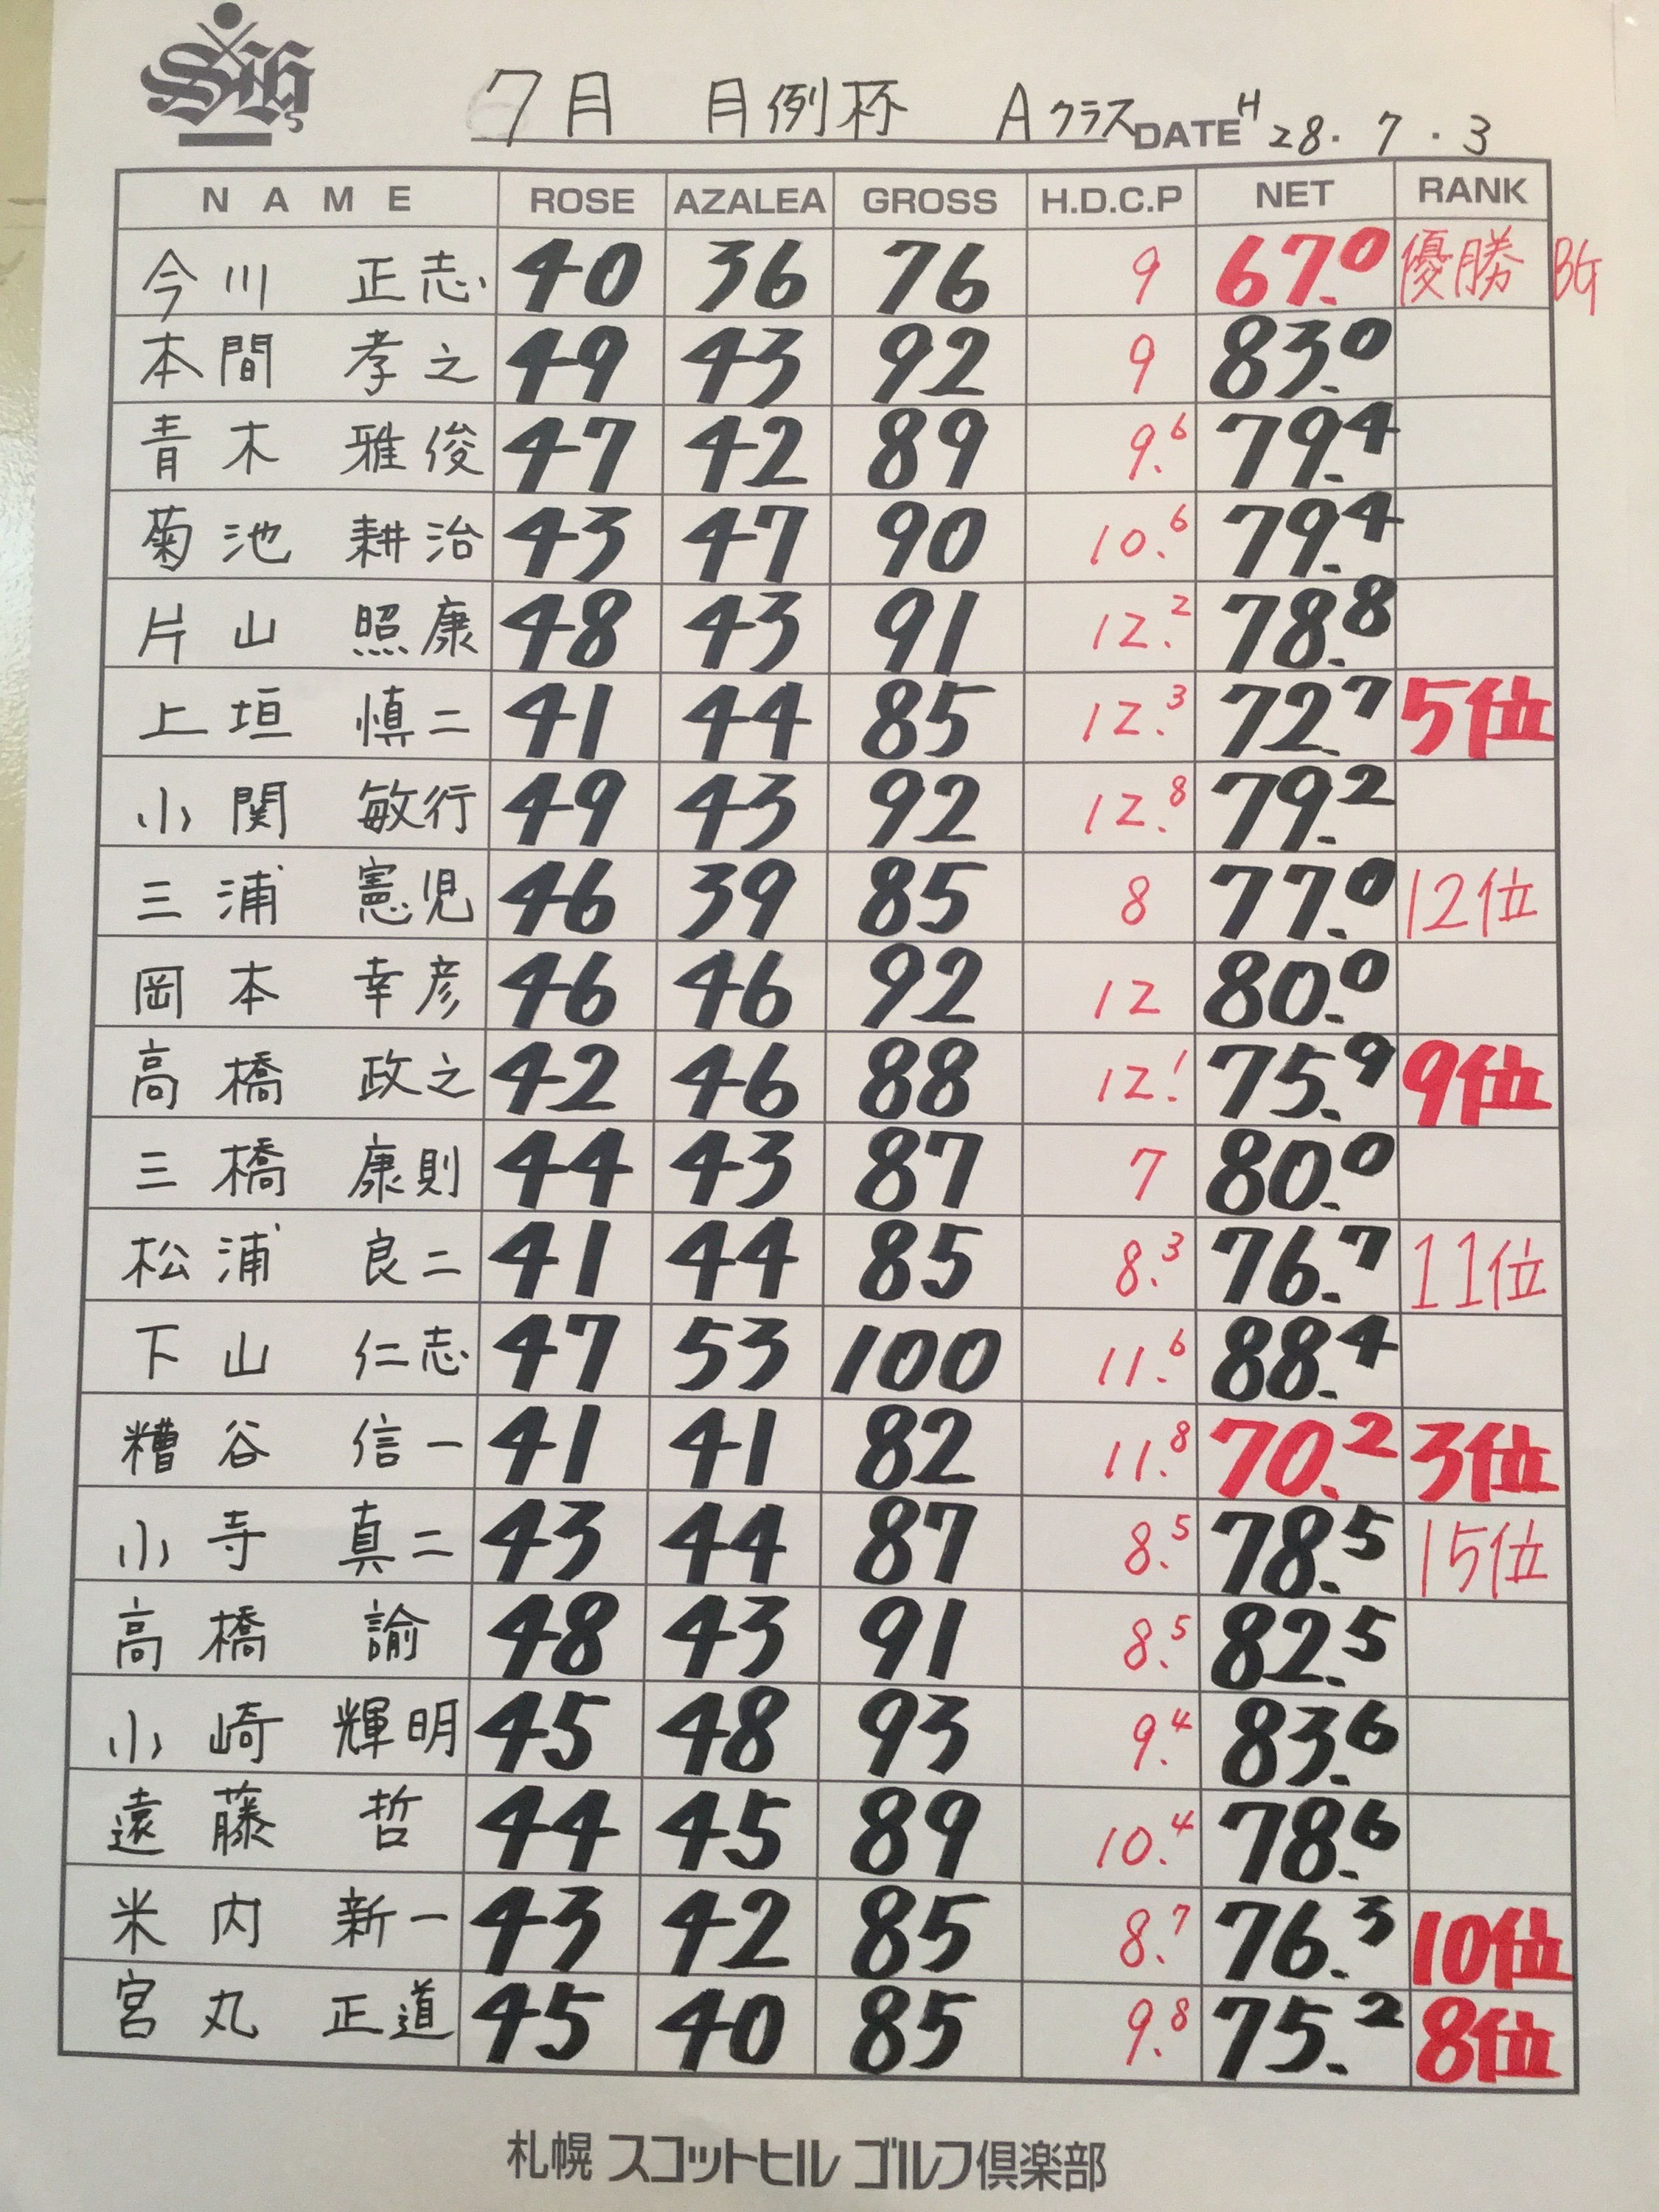 SHS
7月 月例杯 Aクラス DATE H28.7.3
NAME ROSE AZALEA GROSS H.D.C.P NET RANK
今川 正志 40 36 76 9 67.0 優勝 BG
本間 孝之 49 43 92 9 83.0
青木 雅俊 47 42 89 9.6 79.4
菊池 耕治 43 47 90 10.6 79.4
片山 照康 48 43 91 12.2 78.8
上垣 慎二 41 44 85 12.3 72.7 5位
小関 敏行 49 43 92 12.8 79.2
三浦 憲児 46 39 85 8 77.0 12位
岡本 幸彦 46 46 92 12 80.0
高橋 政之 42 46 88 12.1 75.9 9位
三橋 康則 44 43 87 7 80.0
松浦 良二 41 44 85 8.3 76.7 11位
下山 仁志 47 53 100 11.6 88.4
糟谷 信一 41 41 82 11.8 70.2 3位
小寺 真二 43 44 87 8.5 78.5 15位
高橋 諭 48 43 91 8.5 82.5
小崎 輝明 45 48 93 9.4 83.6
遠藤 哲 44 45 89 10.4 78.6
米内 新一 43 42 85 8.7 76.3 10位
宮丸 正道 45 40 85 9.8 75.2 8位
札幌 スコットヒル ゴルフ倶楽部